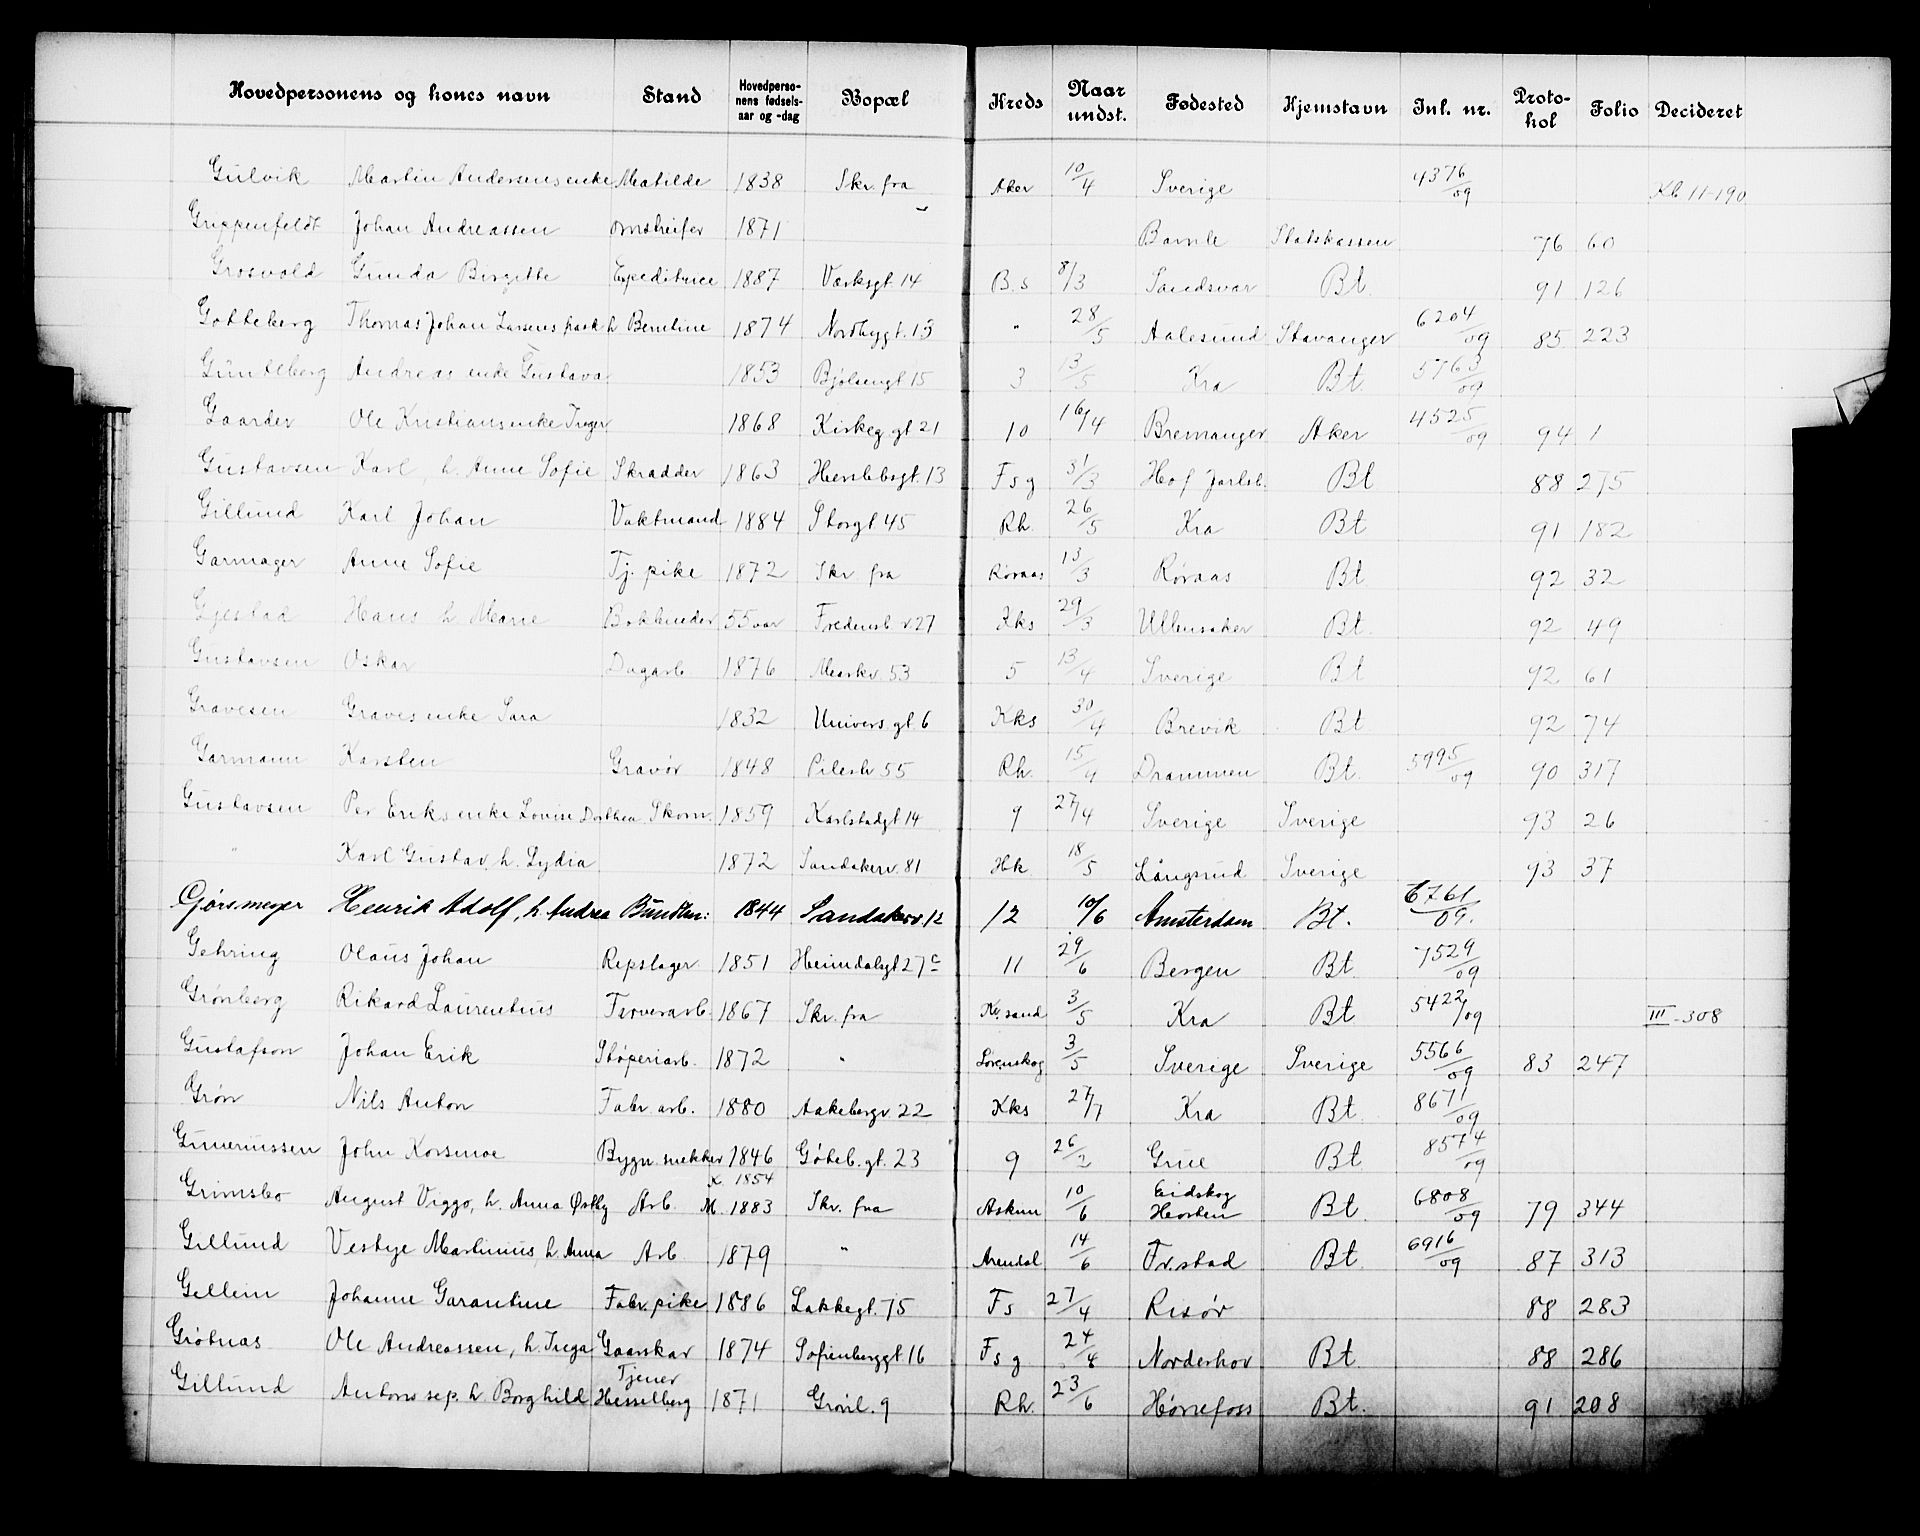 Hovedpersonens og kones navn Stand Hovedpersonens fødselsaar og -dag Bopæl Kreds Naar undst. Fødested Hjemstavn Inl. nr. Protokol Folio Decideret
Gulvik Martin Andersens enke Matilde 1838 Skr. fra Aker 10/4 Sverige 4376/09 Kb 11-190
Grippenfeldt Johan Andreassen omstreifer 1871 " Bamle Statskassen 76 60
Grosvold Gunda Birgitte Expeditrice 1887 Værksgt. 14 B.s 8/3 Sandsvær Bt 91 126
Gotteberg Thomas Johan Larsens frask h. Berntine 1874 Nordbygt. 13 " 28/5 Aalesund Stavanger 6204/09 85 223
Güntelberg Andreas enke Gustava 1853 Bjølsengt 15 3 13/5 Kra Bt. 5763/09
Gaarder Ole Kristians enke Inger 1868 Kirkeg.gt 21 10 16/4 Bremanger Aker 4525/09 94 1
Gustavsen Karl, h. Anne Sofie Skrædder 1863 Herslebsgt. 13 Fsg 31/3 Hof Jarlsb. Bt 88 275
Gillund Karl Johan Vaktmand 1884 Storgt 45 Rh. 26/5 Kra Bt 91 182
Garmager Anne Sofie Tj. pike 1872 Skr fra Røraas 13/3 Røraas Bt 92 32
Gjestad Hans h. Marie Bokbinder 55 aar Fredensb.v 27 Kks 29/3 Ullensaker Bt. 92 49
Gustavsen Oskar Dagarb. 1876 Maerkv 53 5 13/4 Sverige Bt 92 61
Gravesen Graves enke Sara 1832 Univers.gt. 6 Kks 30/4 Brevik Bt 92 74
Garmann Karsten Gravør 1848 Pilestr 55 Rh. 15/4 Drammen Bt. 5995/09 90 317
Gustavsen Per Eriks enke Lovise Dorthea Skom. 1859 Karlstadgt 14 9 27/4 Sverige Sverige 93 26
" Karl Gustav, h. Lydia 1872 Sandakerv. 81 Hk 18/5 Långsrud Sverige 93 37
Gjørsmeyer Henrik Adolf, h. Andrea Bundtm: 1844 Sandakerv 12 12 10/6 Amsterdam Bt. 6761/09.
Gehring Olaus Johan Repslager 1851 Heimdalsgt 27 c 11 29/6 Bergen Bt. 7529/09
Grønberg Rikard Laurentius Farverarb. 1867 Skr. fra Kr.sand 3/5 Kra Bt 5422/09 III-308
Gustafson Johan Erik Støperiarb. 1872 " Lørenskog 3/5 Sverige Sverige 5566/09 83 247
Grøn Nils Anton Fabr. arb. 1880 Aakebergv 22 Kks 27/7 Kra Bt. 8671/09
Guneriussen John Korsmoe Bygn. snekker 1846 Göteb. gt. 23 9 26/2 Grue Bt. 8574/09
Grimsbo August Viggo, h. Anna Østby Arb. K. 1854 M. 1883 Skr. fra Askim 10/6 Eidskog Horten Bt. 6808/09 79 344
Gillund Vestye Martinius, h. Anna Arb. 1879 " Arendal 14/6 Fr.stad Bt. 6916/09 87 313
Gellein Johanne Garantine Fabr. pike 1886 Lakkegt. 75 Fs 27/4 Risør 88 283
Grøtnas Ole Andreassen, h. Inga Gaarskar 1874 Sofienberggt 16 Fsg 24/4 Norderhov Bt. 88 286
Gillund Antons sep. h. Borghild Tjener Hesselberg 1871 Grønl. 9 Rh. 23/6 Hønefoss Bt. 91 208